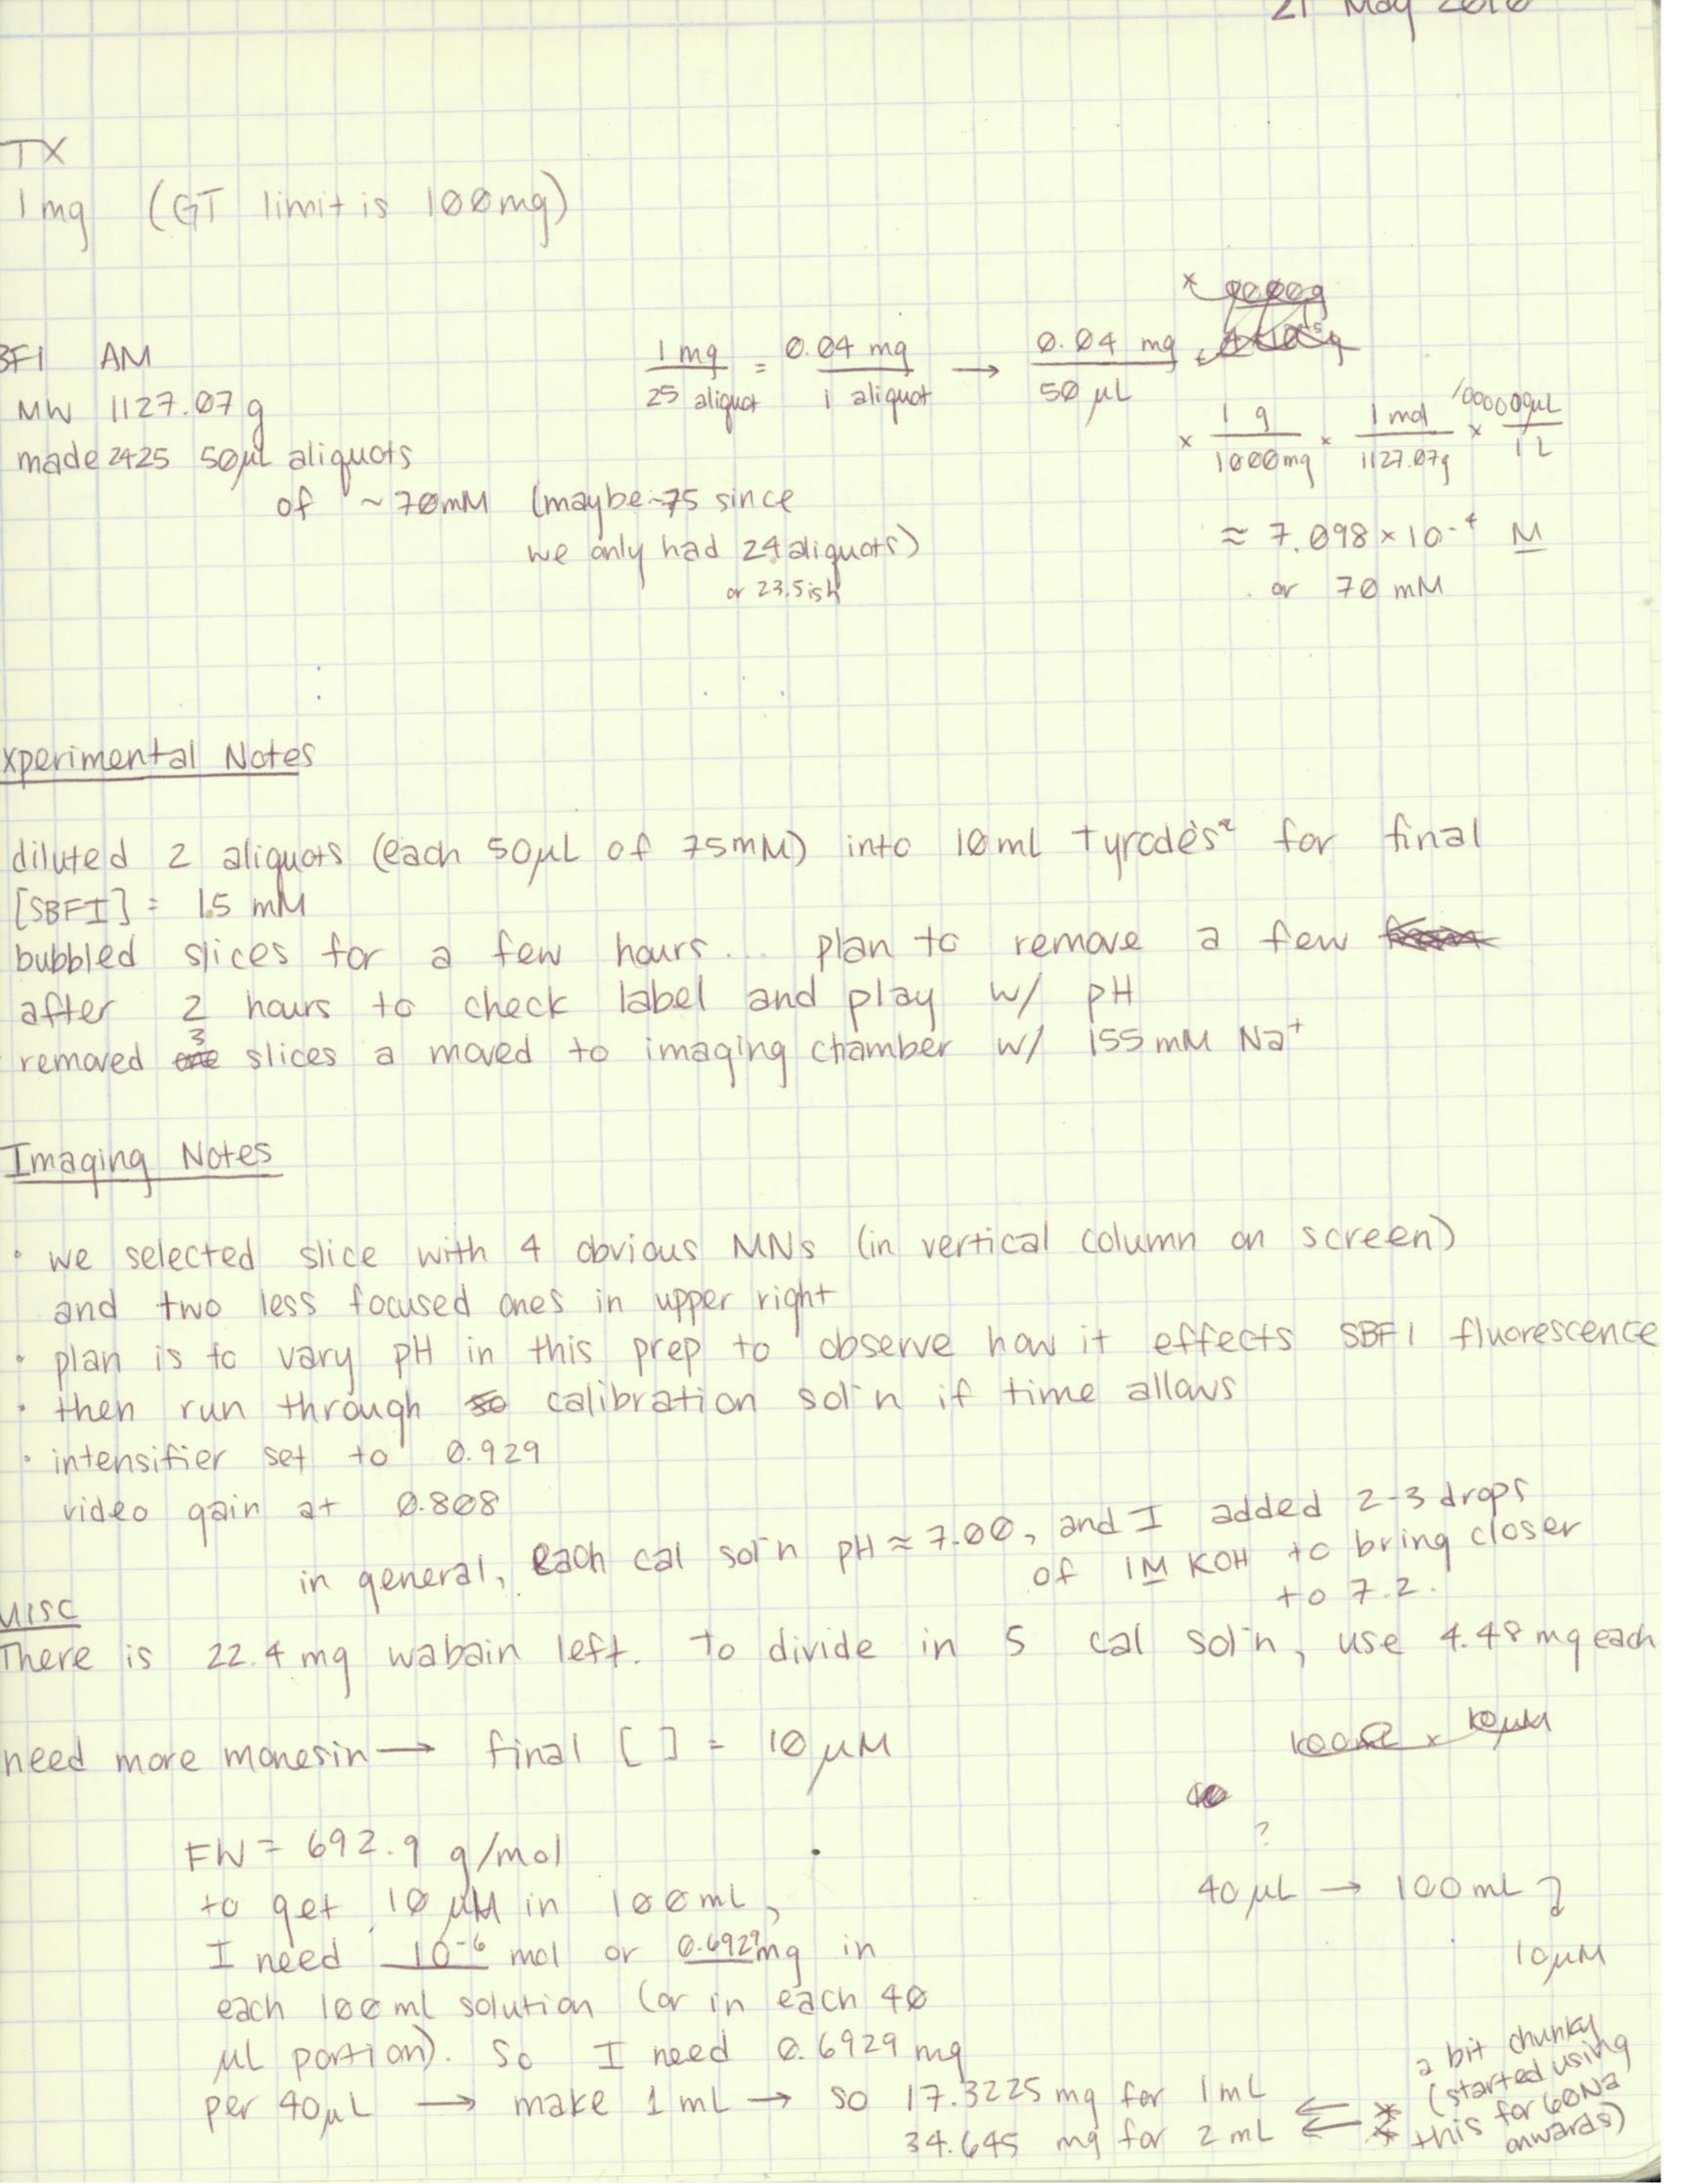 21 May 2010
TX
1mg (GT limit is 100mg)
BFI AM
MW 1127.07 g
made 2425 50µL aliquots
of ~70mM (maybe ~75 since
we only had 24 aliquots)
or 23.5ish
1 mg / 25 aliquot = 0.04 mg / 1 aliquot → 0.04 mg / 50 µL
× 1 g / 1000mg × 1 mol / 1127.07g × 1000000µL / 1 L
≈ 7.098 × 10⁻⁴ M
or 70 mM
xperimental Notes
diluted 2 aliquots (each 50µL of 75mM) into 10ml Tyrode's² for final
[SBFI] = 1.5 mM
bubbled slices for a few hours... plan to remove a few
after 2 hours to check label and play w/ pH
removed one 3 slices a moved to imaging chamber w/ 155 mM Na⁺
Imaging Notes
• we selected slice with 4 obvious MNs (in vertical column on screen)
and two less focused ones in upper right
• plan is to vary pH in this prep to observe how it effects SBFI fluorescence
• then run through so calibration sol'n if time allows
• intensifier set to 0.929
video gain at 0.808
in general, each cal sol'n pH ≈ 7.00, and I added 2-3 drops
of 1M KOH to bring closer
to 7.2.
Misc
There is 22.4 mg wabain left. To divide in 5 cal sol'n, use 4.48 mg each
need more monesin → final [ ] = 10 µM
100Ω × 10µM
?
40 µL → 100mL
10µM
FW = 692.9 g/mol
to get 10 µM in 100mL,
I need 10⁻⁶ mol or 0.6929mg in
each 100ml solution (or in each 40
µL portion). So I need 0.6929 mg
per 40µL → make 1 mL → so 17.3225 mg for 1mL
34.645 mg for 2 mL
a bit chunky
(started using
this for 60Na
onwards)